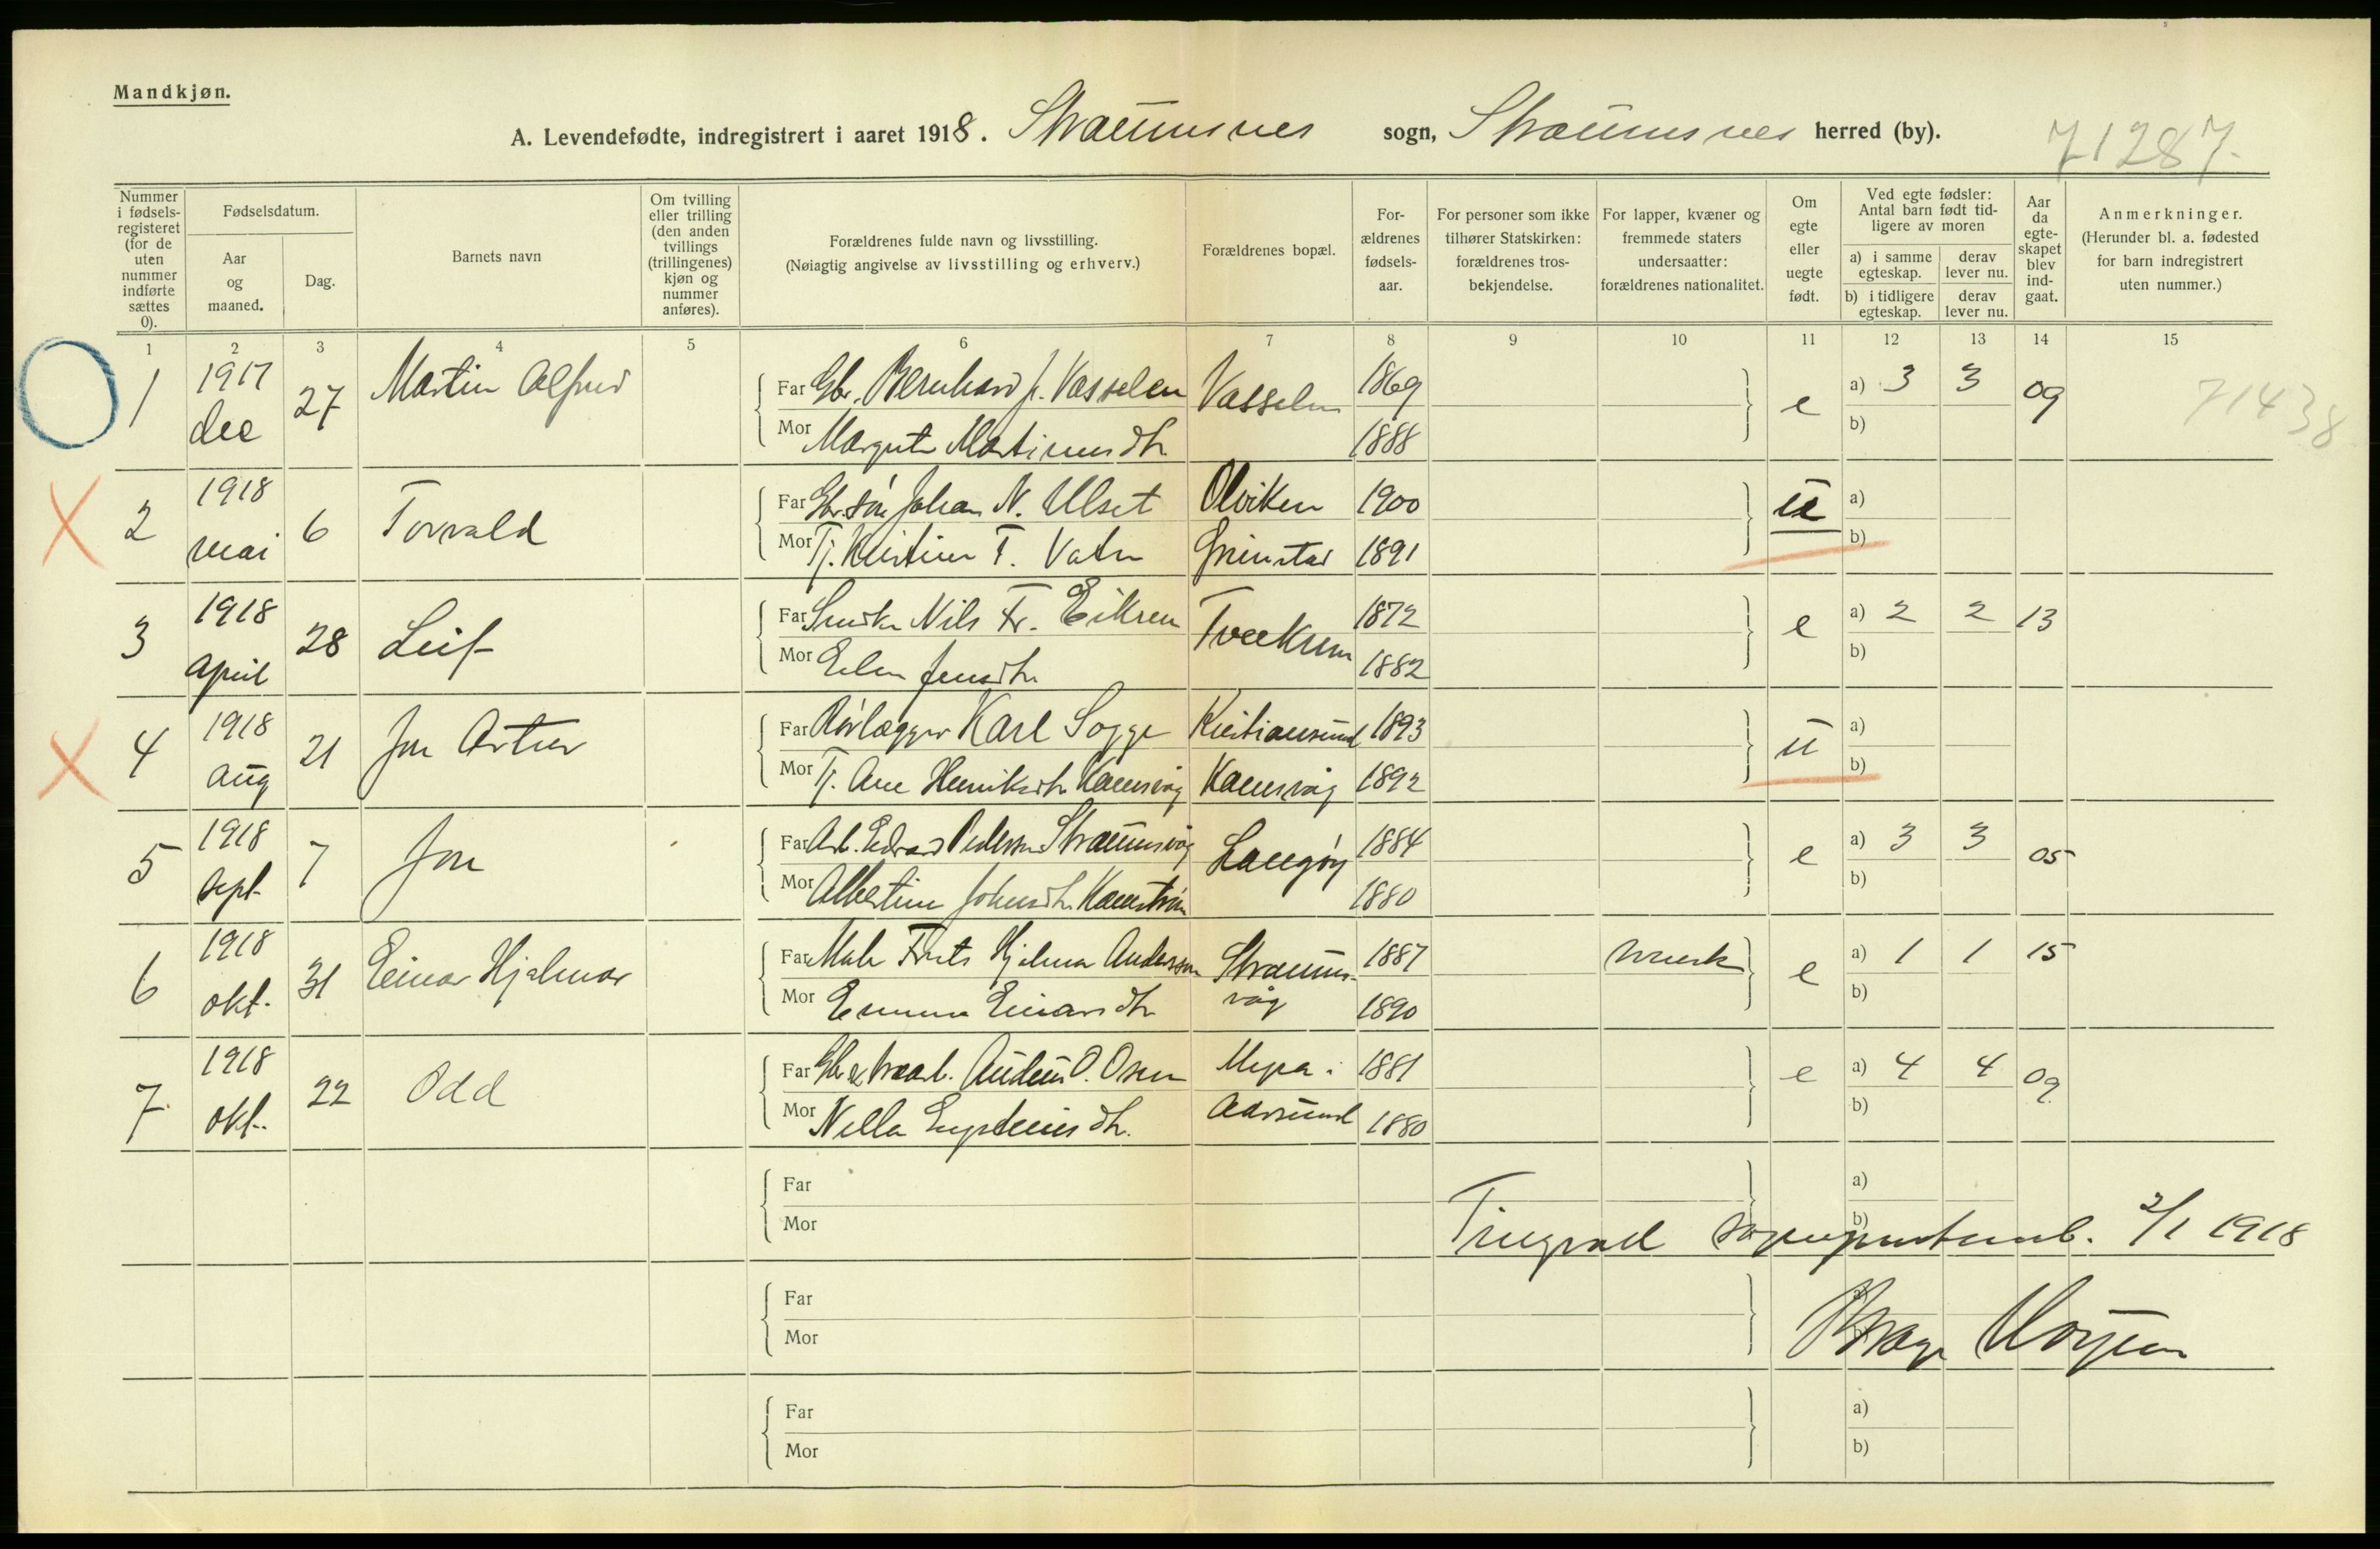 Mandkjøn.
A. Levendefødte, indregistrert i aaret 1918. Straumsnes sogn, Straumsnes herred (by).
71287.
Nummer i fødsels-registeret (for de uten nummer indførte sættes 0).
Fødselsdatum.
Aar og maaned.
Dag.
Barnets navn
Om tvilling eller trilling (den anden tvillings (trillingenes) kjøn og nummer anføres).
Forældrenes fulde navn og livsstilling.
(Nøiagtig angivelse av livsstilling og erhverv.)
Forældrenes bopæl.
For-ældrenes fødsels-aar.
For personer som ikke tilhører Statskirken: forældrenes tros-bekjendelse.
For lapper, kvæner og fremmede staters undersaatter: forældrenes nationalitet.
Om egte eller uegte født.
Ved egte fødsler: Antal barn født tid-ligere av moren
a) i samme egteskap.
derav lever nu.
b) i tidligere egteskap.
derav lever nu.
Aar da egte-skapet blev ind-gaat.
Anmerkninger.
(Herunder bl. a. fødested for barn indregistrert uten nummer.)
1 2 3 4 5 6 7 8 9 10 11 12 13 14 15
1 1917 dec 27 Martin Alfred Far Gbr. Bernhard J. Vasselen Vasselen 1869 e a) 3 3 09 71438
Mor Margrete Martinusdtr 1888 b)
2 1918 mai 6 Torvald Far Gbr.søn Johan N. Ulset Olviken 1900 u a)
Mor Tj. Kristine T. Vatn Grimstad 1891 b)
3 1918 april 28 Leif Far Nils Fr. Eikrem Tveekrem 1872 e a) 2 2 13
Mor Elen Jensdtr 1882 b)
4 1918 aug 21 Jon Artur Far Rørlægger Karl Sogge Kristiansund 1893 u a)
Mor Tj. Ane Henriksdtr Kamsvåg Kamsvåg 1892 b)
5 1918 sept. 7 Jon Far Arb. Edvard Pedersen Straumsvåg Langøy 1884 e a) 3 3 05
Mor Albertine Johnsdtr 1880 b)
6 1918 okt. 31 Einar Hjalmar Far Frits Hjalmar Andersson Straumsvåg 1887 svensk e a) 1 1 15
Mor Emma Einarsdtr 1890 b)
7. 1918 okt. 22 Odd Far Gbr & Audun O. Osen i Aarsund 1881 e a) 4 4 09
Mor Nella 1880 b)
Far a)
Mor b)
Tingvoll 2/1 1918
Far a)
Mor b)
Far a)
Mor b)